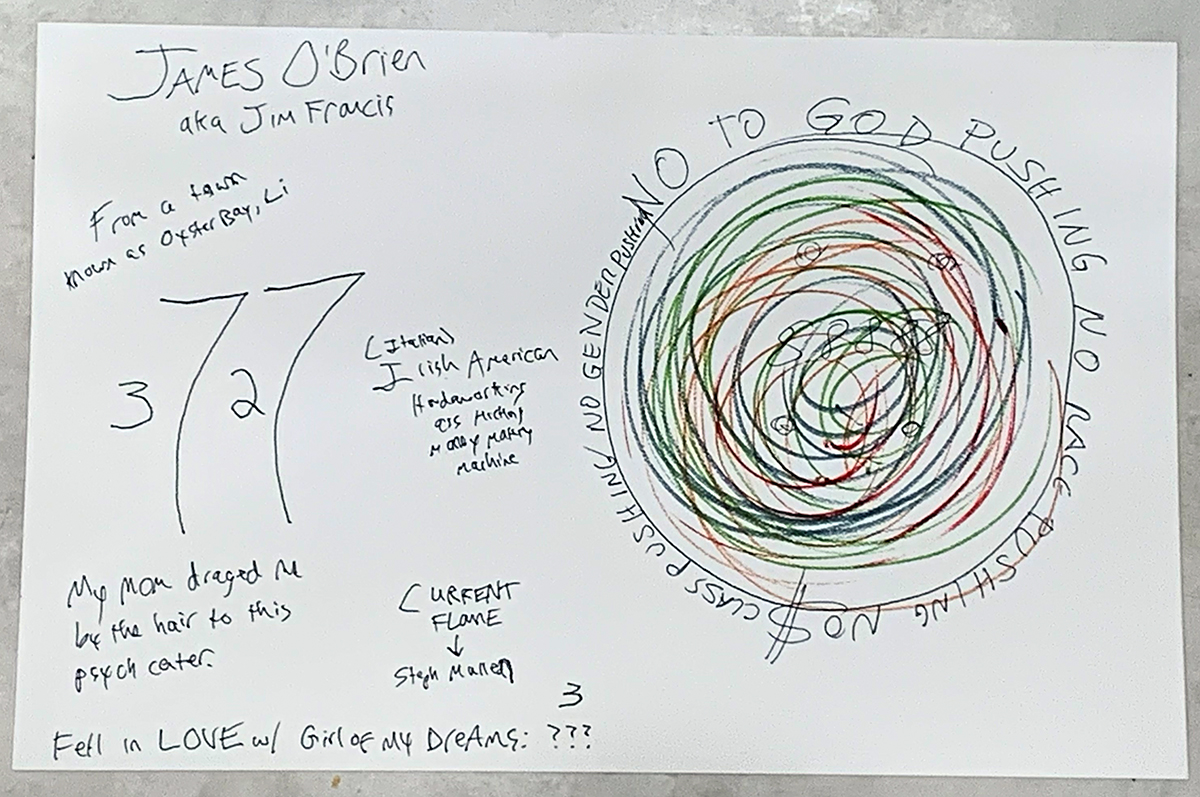 JAMES O'Brien
aka Jim Francis
From a town
known as Oyster Bay, Li
3 7 2 7
(Italian)
Irish American
Hardworking
ass kicking
money making
machine
My mom draged me
by the hair to this
psych center.
CURRENT
FLAME
↓
Steph
3
Fell in LOVE w/ Girl of My DreAms: ???
NO TO GOD PUSHING NO RACE PUSHING NO $ CLASS PUSHING/ NO GENDER PUSHING
8 8 8 8 8